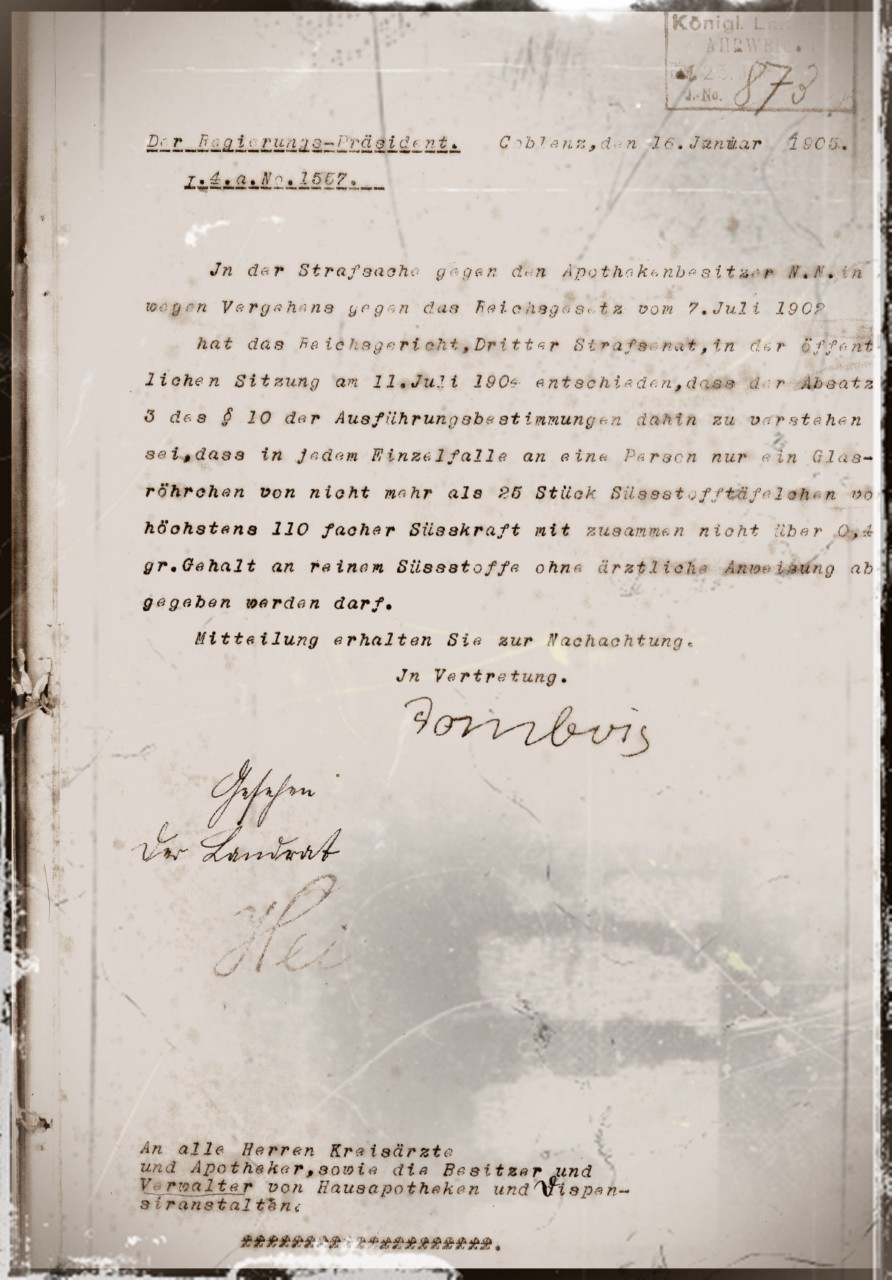 Königl.
AHRWEI
23.
J.-No. 873
Der Regierungs-Präsident. Coblenz,den 16.Januar 1905.
I.4.a.No.1557.
Jn der Strafsache gegen den Apothekenbesitzer N.N.in
wegen Vergehens gegen das Reichsgesetz vom 7.Juli 1902
hat das Reichsgericht,Dritter Strafsenat,in der öffent
lichen Sitzung am 11.Juli 1904 entschieden,dass der Absatz
3 des § 10 der Ausführungsbestimmungen dahin zu verstehen
sei,dass in jedem Einzelfalle an eine Person nur ein Glas-
röhrchen von nicht mehr als 25 Stück Süssstofftäfelchen vo
höchstens 110 facher Süsskraft mit zusammen nicht über 0,4
gr.Gehalt an reinem Süssstoffe ohne ärztliche Anweisung ab
gegeben werden darf.
Mitteilung erhalten Sie zur Nachachtung.
Jn Vertretung.
Gesehen
Der Landrat
An alle Herren Kreisärzte
und Apotheker,sowie die Besitzer und
Verwalter von Hausapotheken und Dispen-
siranstalten.